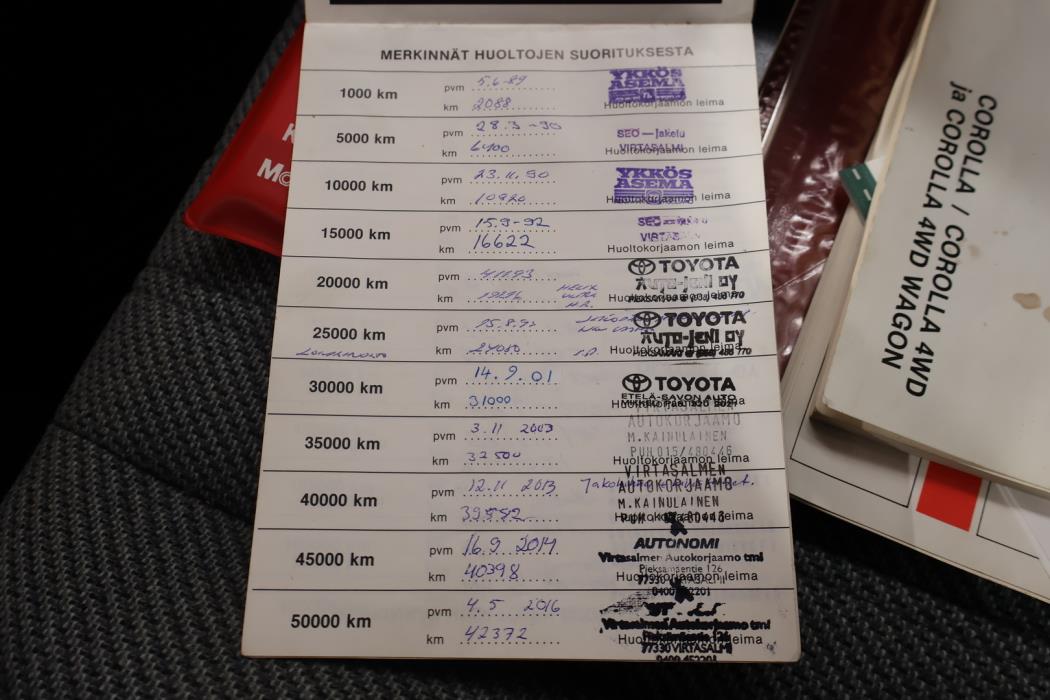 MERKINNÄT HUOLTOJEN SUORITUKSESTA
1000 km
pvm 5.6-89
km 2088
YKKÖS
ASEMA
Huoltokorjaamon leima
5000 km
pvm 28.3-90
km 6400
SEO-Jakelu
VIRTASALMI
Huoltokorjaamon leima
10000 km
pvm 23.11.90
km 10920
YKKÖS
ASEMA
Huoltokorjaamon leima
15000 km
pvm 15.9-92
km 16622
SEO
Huoltokorjaamon leima
20000 km
pvm
km
TOYOTA
Auto-Jeni oy
Huoltokorjaamon leima
25000 km
pvm
km
TOYOTA
Auto-Jeni oy
Huoltokorjaamon leima
30000 km
pvm 14.9.01
km 31000
TOYOTA
ETELÄ-SAVON AUTO
35000 km
pvm 3.11 2003
km 32500
AUTOKORJAAMO
M.KAINULAINEN
PUH 015/480446
Huoltokorjaamon leima
40000 km
pvm 12.11 2013
km 39582
VIRTASALMEN
AUTOKORJAAMO
M.KAINULAINEN
Huoltokorjaamon leima
45000 km
pvm 16.9 2014
km 40398
AUTONOMI
Virtasalmen Autokorjaamo tmi
Pieksämäentie 126
77330 VIRTASALMI
Huoltokorjaamon leima
50000 km
pvm 4.5 2016
km 42372
Virtasalmen Autokorjaamo tmi
Huoltokorjaamon leima
77330 VIRTASALMI
COROLLA / COROLLA 4WD
ja COROLLA 4WD WAGON